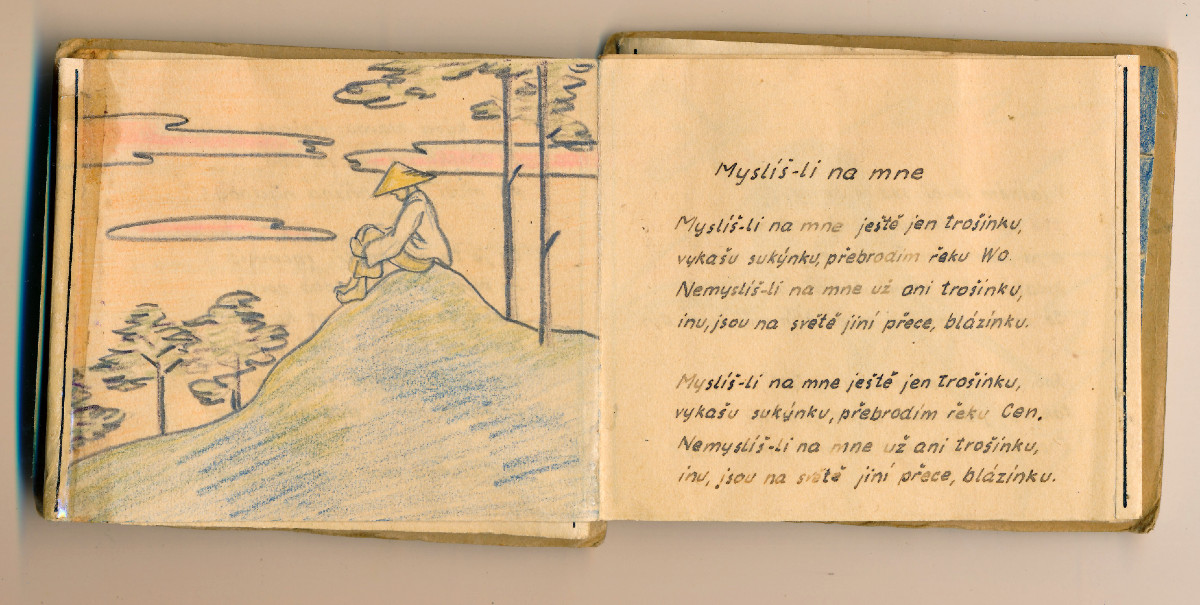 Myslíš-li na mne
Myslíš-li na mne ještě jen trošinku,
vykašu sukýnku, přebrodím řeku Wo.
Nemyslíš-li na mne už ani trošinku,
inu, jsou na světě jiní přece, blázínku.
Myslíš-li na mne ještě jen trošinku,
vykašu sukýnku, přebrodím řeku Cen.
Nemyslíš-li na mne už ani trošínku,
inu, jsou na světě jiní přece, blázínku.